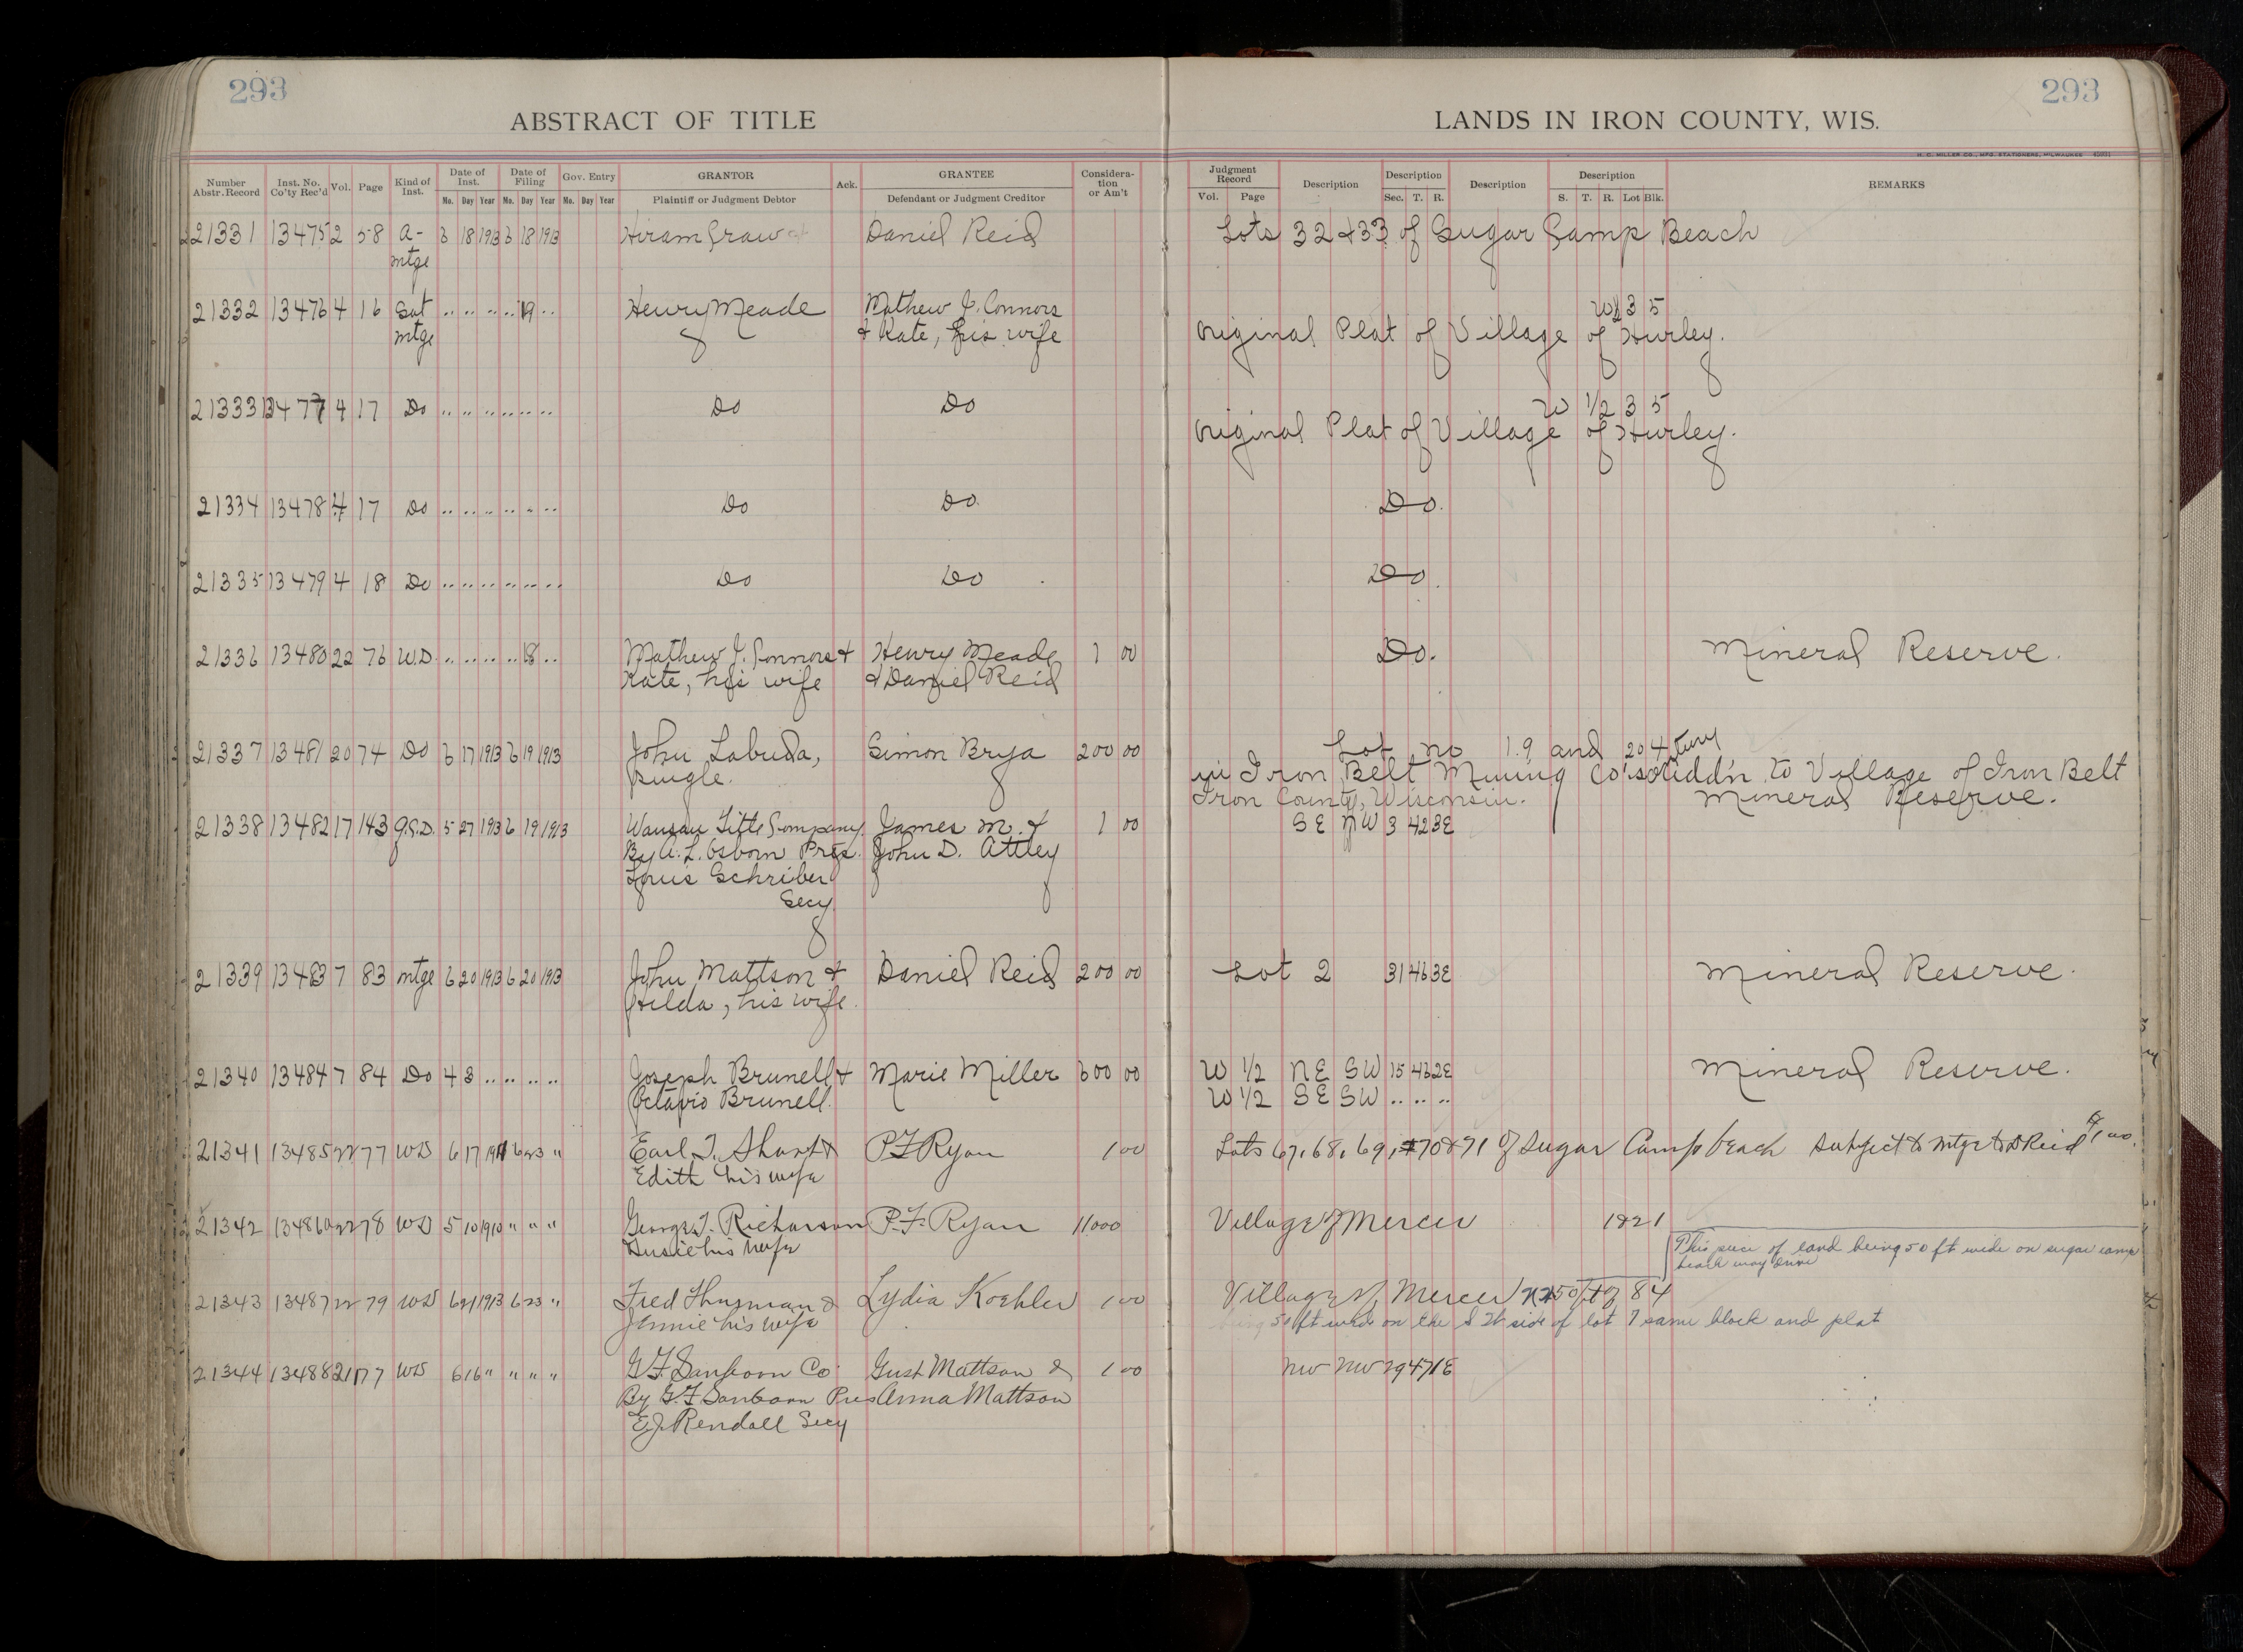 293
293
ABSTRACT OF TITLE
LANDS IN IRON COUNTY, WIS.
H. C. MILLER CO., MFG. STATIONERS, MILWAUKEE
Number Abstr. Record Inst. No. Co'ty Rec'd Vol. Page Kind of Inst. Date of Inst. Date of Filing Gov. Entry GRANTOR Ack. GRANTEE Considera-tion or Am't Judgment Record Description Description Description Description REMARKS
No. Day Year No. Day Year Mo. Day Year Plaintiff or Judgment Debtor Defendant or Judgment Creditor Vol. Page Sec. T. R. S. T. R. Lot Blk.
21331 13475 2 58 A- 6 18 1913 6 18 1913 Hiram Daniel Reid Lots 32 & 33 of Sugar Camp Beach
mtge
21332 13476 4 16 Sat .. .. .. .. 19 .. Henry Meade Mathew J. Connors W½ 3 5
mtge & Kate, his wife Original Plat of Village of Hurley.
21333 13477 4 17 Do .. .. .. .. .. .. Do Do W 1/2 3 5
Original Plat of Village of Hurley.
21334 13478 4 17 Do .. .. .. .. .. .. Do Do. Do.
21335 13479 4 18 Do .. .. .. .. .. .. Do Do Do.
21336 13480 22 76 W.D. .. .. .. .. 18 .. Mathew J. Connors & Henry Meade 1 00 Do. Mineral Reserve.
Kate, his wife & Daniel Reid
21337 13481 20 74 Do 6 17 1913 6 19 1913 John Labuda, Simon Brya 200 00 Lot no 19 and 20 4
Single. in Iron Belt Mining Co's Addn. to Village of Iron Belt
Iron County, Wisconsin. Mineral Reserve.
21338 13482 17 143 Q.C.D. 5 27 1913 6 19 1913 Wausau Title Company James M. & 1 00 SE NW 3 42 3E
By A. L. Osborn Pres. John D. Attley
Louis Schriber
Secy.
21339 13483 7 83 mtge 6 20 1913 6 20 1913 John Mattson & Daniel Reid 200 00 Lot 2 31 46 3E Mineral Reserve.
Hilda, his wife.
21340 13484 7 84 Do 4 3 .. .. .. .. Joseph Brunell & Marie Miller 600 00 W 1/2 NE SW 15 46 2E Mineral Reserve.
Octavio Brunell. W 1/2 SE SW .. .. ..
21341 13485 22 77 WD 6 17 6 23 " Earl T. & P.F. Ryan 1 00 Lots 67, 68, 69, 70 & 71 of Sugar Camp beach Subject to Mtge to D Reid
Edith his wife
21342 13486 22 78 WD 5 10 1910 " " " George T. Richarson P.F. Ryan 11000 Village of Mercer 1 & 2 1
Susie his wife This piece of land being 50 ft wide on sugar camp
beach way
21343 13487 22 79 WD 6 21 1913 6 23 " Fred & Lydia Koehler 1 00 Village of Mercer N 50 ft of 8 4
Jennie his wife being 50 ft wide on the side of lot 7 same block and plat
21344 13488 21 177 WD 6 16 " " " " G.F. Sanborn Co. Gust Mattson & 1 00 NW NW 29 47 1E
By G.F. Sanborn Pres Anna Mattson
E.J. Rendall Secy